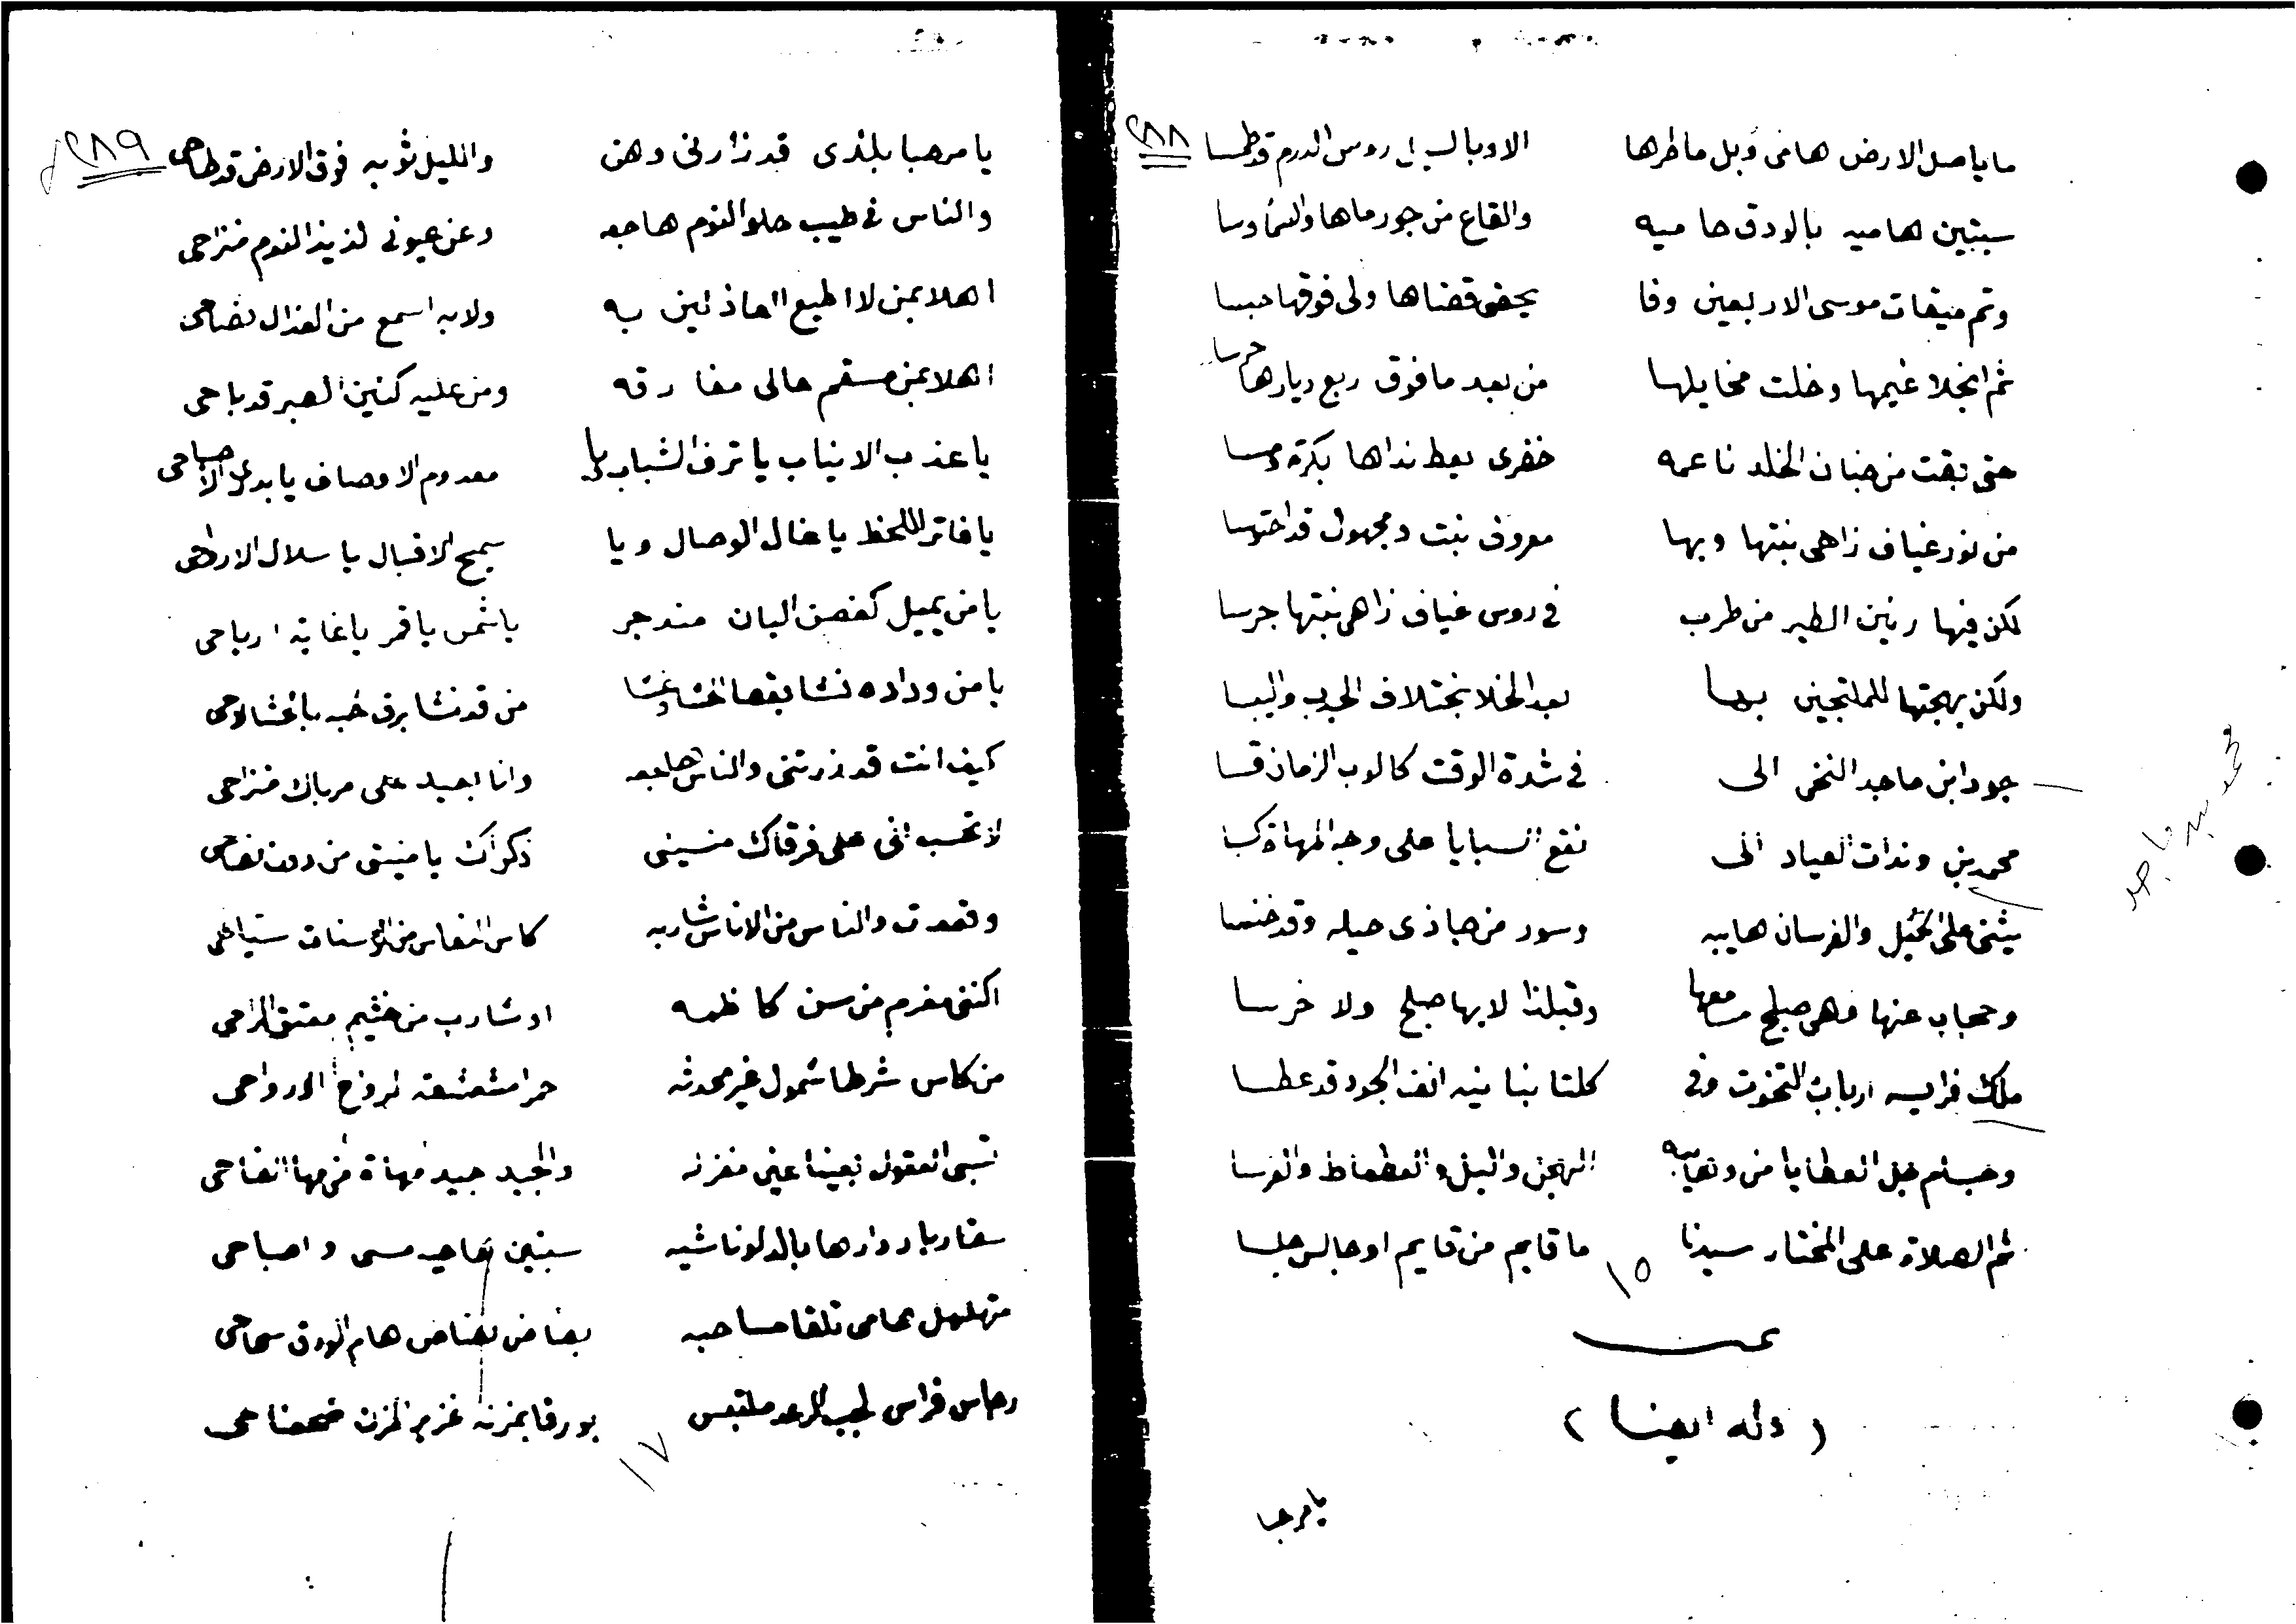 ٢٨٨
ما ياصل الارض هامى وبل ماطرها الا وبالسيل روس الدرم قد طمسا
سبتين هاميه بالودق حاميه والقاع من جور ماها والسما وسا
وتم ميقات موسى الاربعين وفا يحفى قضناها ولى فوقها حبسا
ثم انجلا غيمها وخلت مخايلها من بعد ما فوق ربع ديارها حرسا
حتى بقت من جنان الخلد ناعمه خضرى بعط نداها بكرة ومسا
من نور غياف زاهى نبتها وبها معروف نبت ومجهول قد اختهسا
لكن فيها رنين الطير من طرب فى روس غياف زاهى نبتها جرسا
ولكن بهجتها للملتجين بها بعد الخلا بختلاف الجدب واليبسا
جود ابن ماجد النخى الى فى شدة الوقت كالوب الزمان قسا
محمد بن وندات العياد الى نقع السبايا على وجه المهاة كسا
يثنى على الخيل والفرسان هايبه وسور من جاذى حيله وقد خنسا
وحجاب عنها وهى صبلح مسامعها وقبلذا لابها صبلح ولا خرسا
ملك فرايسه ارباب التخوت وفى كلتا بنانيه انف الجود قد عطسا
وخسام جل العطايا من ونعايبه الهجن والبل والعطعاط والفرسا
ثم الصلاة على المختار سيدنا ما قايم من قايم او جالس جلسا
١٥
تمت
( وله ايضا )
يا مرحبا
محمد بن ماجد
٢٨٩
يا مرحبا بلذى قد زارنى وهن والليل ثوبه فوق الارض قد طاحى
والناس فى طيب حلو النوم هاجعه وعن عيونى لذيذ النوم منزاحى
اهلا بمن لا اطيع العاذلين به ولا به اسمع من العذال نضاحى
اهلا بمن مسقم حالى مفارقه ومن عليه كنين الصبر قد باحى
يا عذب الانياب يا ترف الشباب ويا معدوم الاوصاف يا بدر الاصباحى
يا فاتر اللحظ يا غال الوصال ويا سميح الاقبال يا سلال الارواحى
يا من يميل كغصن البان مندجر يا شمس يا قمر يا غاية ارياحى
يا من وداده نشا بقصا الحشا ونشا من قد نشا برق حبه بالحشا لاوحى
كيف انت قد زرتنى والناس هاجعه وانا بعيد على مرباك منزاحى
لا تحسب انى على فرقاك منسينى ذكراك يا منيتى من دون نصاحى
وقعدت والناس من الاناس شاربه كاس النعاس من الوسنات ستباحى
اكننى مغرم من سن كاظمه او شارب من خثيم معتق الراحى
من كاس شرطا شمول غير محدثه حمرا مشعشعه لرواح الارواحى
تسبى العقول بعينا عين مغزله والجيد جيد مهاة من مها الضاحى
سقا ربار دارها بالدلو ناشيه سبتين نهاجيه مسى واصباحى
متهلهل عامى تلقا مساحبه بضاض نضاض هام الودق سحاحى
رجاس فراس لجب الرعد ملتبس بورقا بمزنه غزير المزن ضحضاحى
١٧